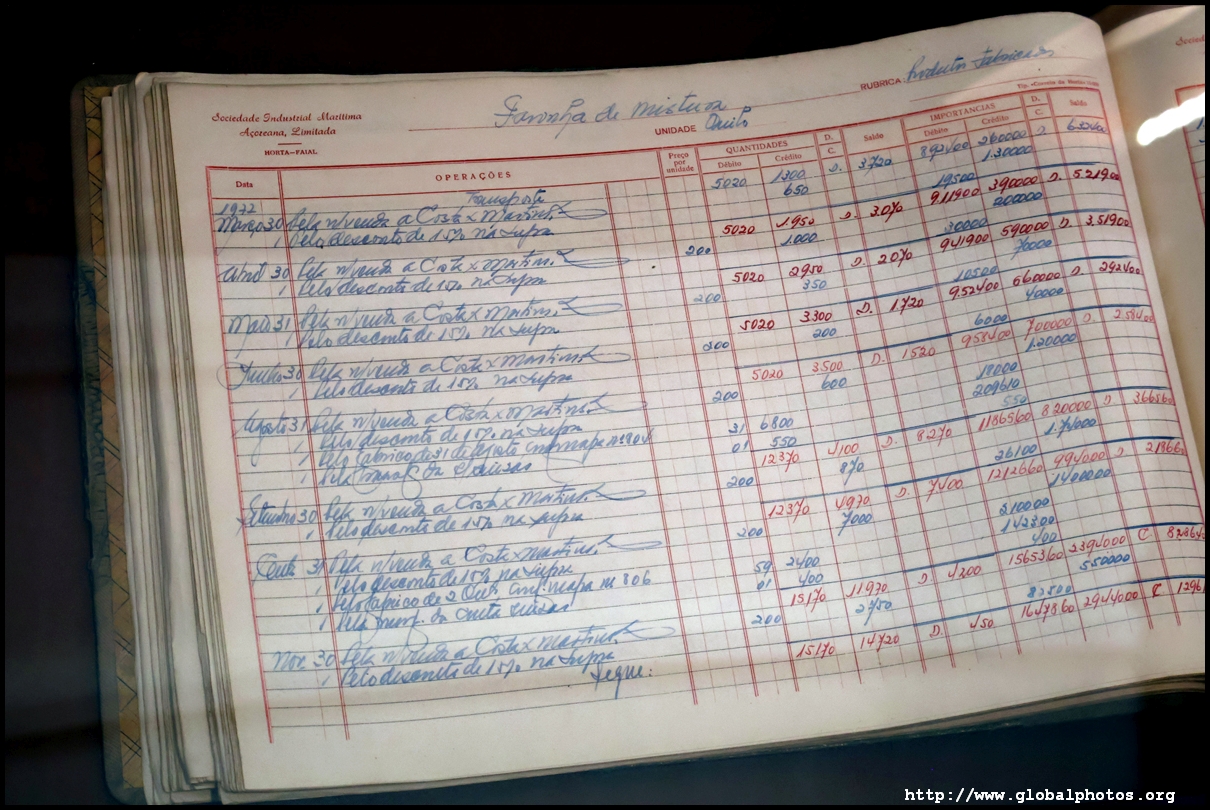 Sociedade Industrial Marítima
Açoreana, Limitada
HORTA—FAIAL
Farinha de mistura
UNIDADE Quilo
RUBRICA Produtos Fabricados
Data OPERAÇÕES Preço por unidade QUANTIDADES Débito Crédito D. C. Saldo IMPORTANCIAS Débito Crédito D. C. Saldo
1972 Transporte 5020 1300 D. 3720 892400 260000 D.
Março 30 Pela n/venda a Costa & Martins, L 650 130000
, Pelo desconto de 15% na supra 19500
5020 1950 D. 3070 911900 390000 D. 521900
Abril 30 Pela n/venda a Costa & Martins, L 200 1000 200000
, Pelo desconto de 15% na supra 30000
5020 2950 D. 2070 941900 590000 D. 351900
Maio 31 Pela n/venda a Costa & Martins, L 200 350 70000
, Pelo desconto de 15% na supra 10500
5020 3300 D. 1720 952400 660000 D. 292400
Junho 30 Pela n/venda a Costa & Martins, L 200 200 40000
, Pelo desconto de 15% na supra 6000
5020 3500 D. 1520 958400 700000 D. 258400
Agosto 31 Pela n/venda a Costa & Martins, L 200 600 120000
, Pelo desconto de 15% na supra 18000
, Pelo fabrico de 31 de Agosto conf. mapa nº 31 6800 209610
, Pela 01 550 550
12370 4100 D. 8270 1186560 820000 D. 366560
Setembro 30 Pela n/venda a Costa & Martins, L 200 870
, Pelo desconto de 15% na supra 26100
12370 4970 D. 7400 1212660 994000 D. 218660
Outº 31 Pela n/venda a Costa & Martins, L 200 7000 1400000
, Pelo desconto de 15% na supra 210000
, Pelo fabrico de 2 Outº conf. mapa nº 806 59 2400 142300
, Pela 01 400 400
15170 11970 D. 4300 1565360 2394000 C. 828640
Nov. 30 Pela n/venda a Costa & Martins, L 200 2750 550000
, Pelo desconto de 15% na supra 82500
15170 14720 D. 450 1647860 2944000 C
Segue:
http://www.globalphotos.org